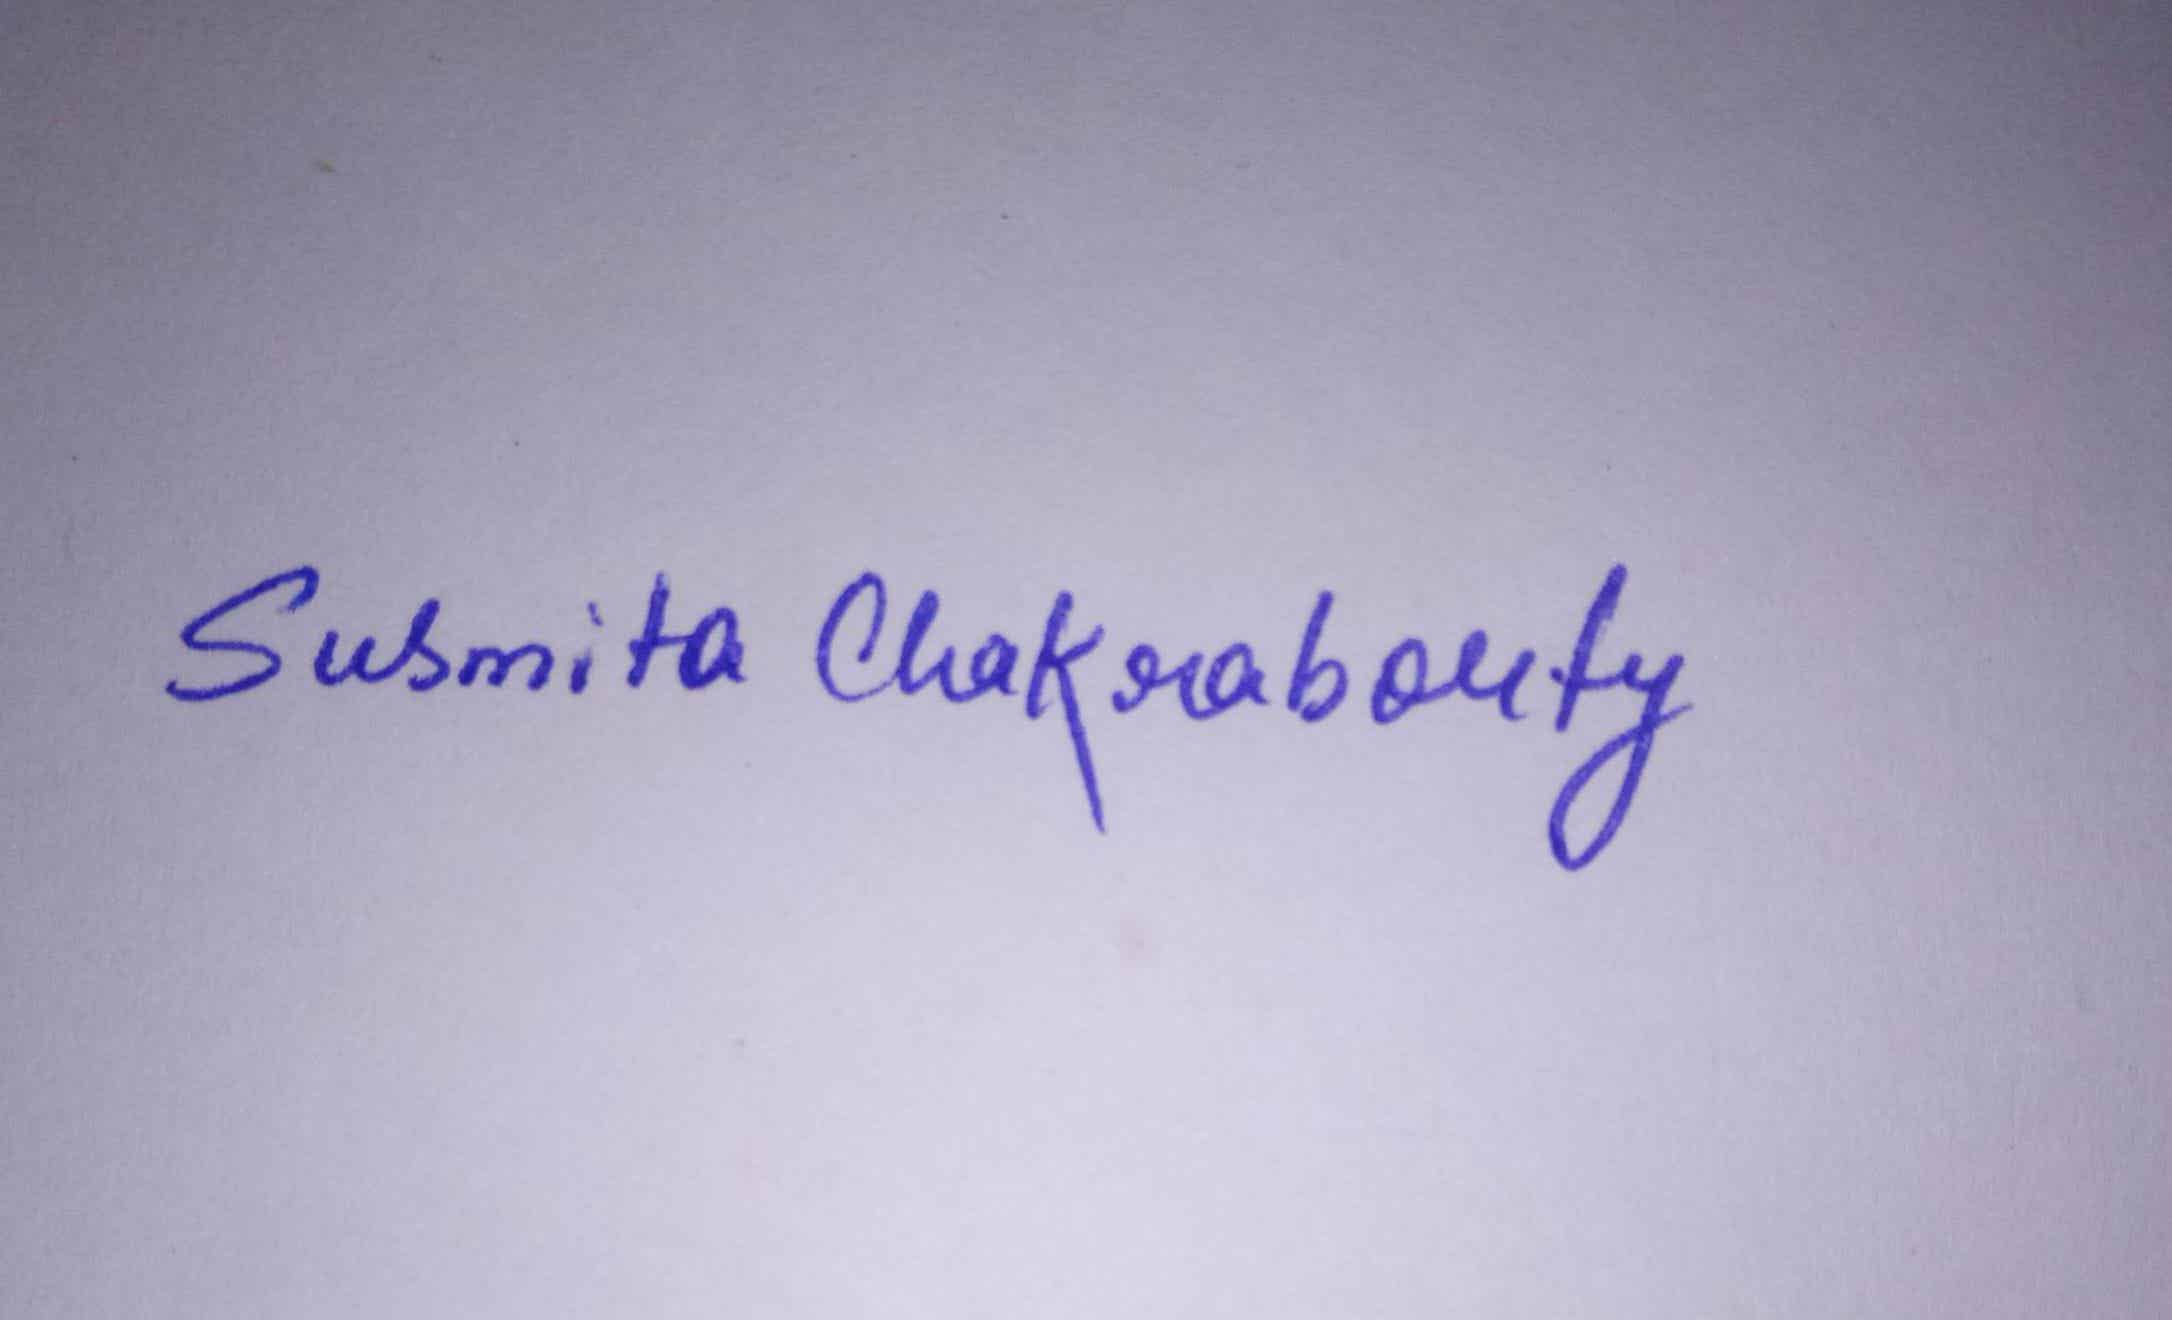 Susmita Chakraborty